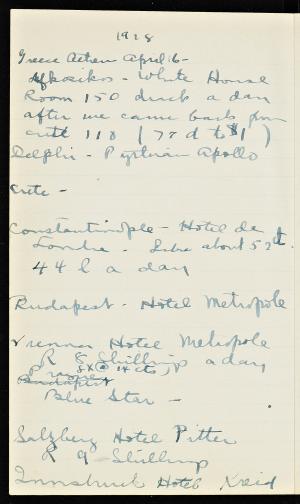 1928
Greece Athens April 16-
- White House
Room 150 drach a day
after we came back from
crete 110 ( 77 d to $1 )
Delphi - Pythian Apollo
Crete -
Constantinople - Hotel de
Londre - Libra about 52
44 l a day
Budapest - Hotel Metropole
Vienna Hotel Metropole
R 8 Shillings a day
Prague 8x@ 14 cts
Budapest
Blue Star -
Salzberg Hotel Pitter
R 9 Shillings
Innsbruck Hotel Kreid